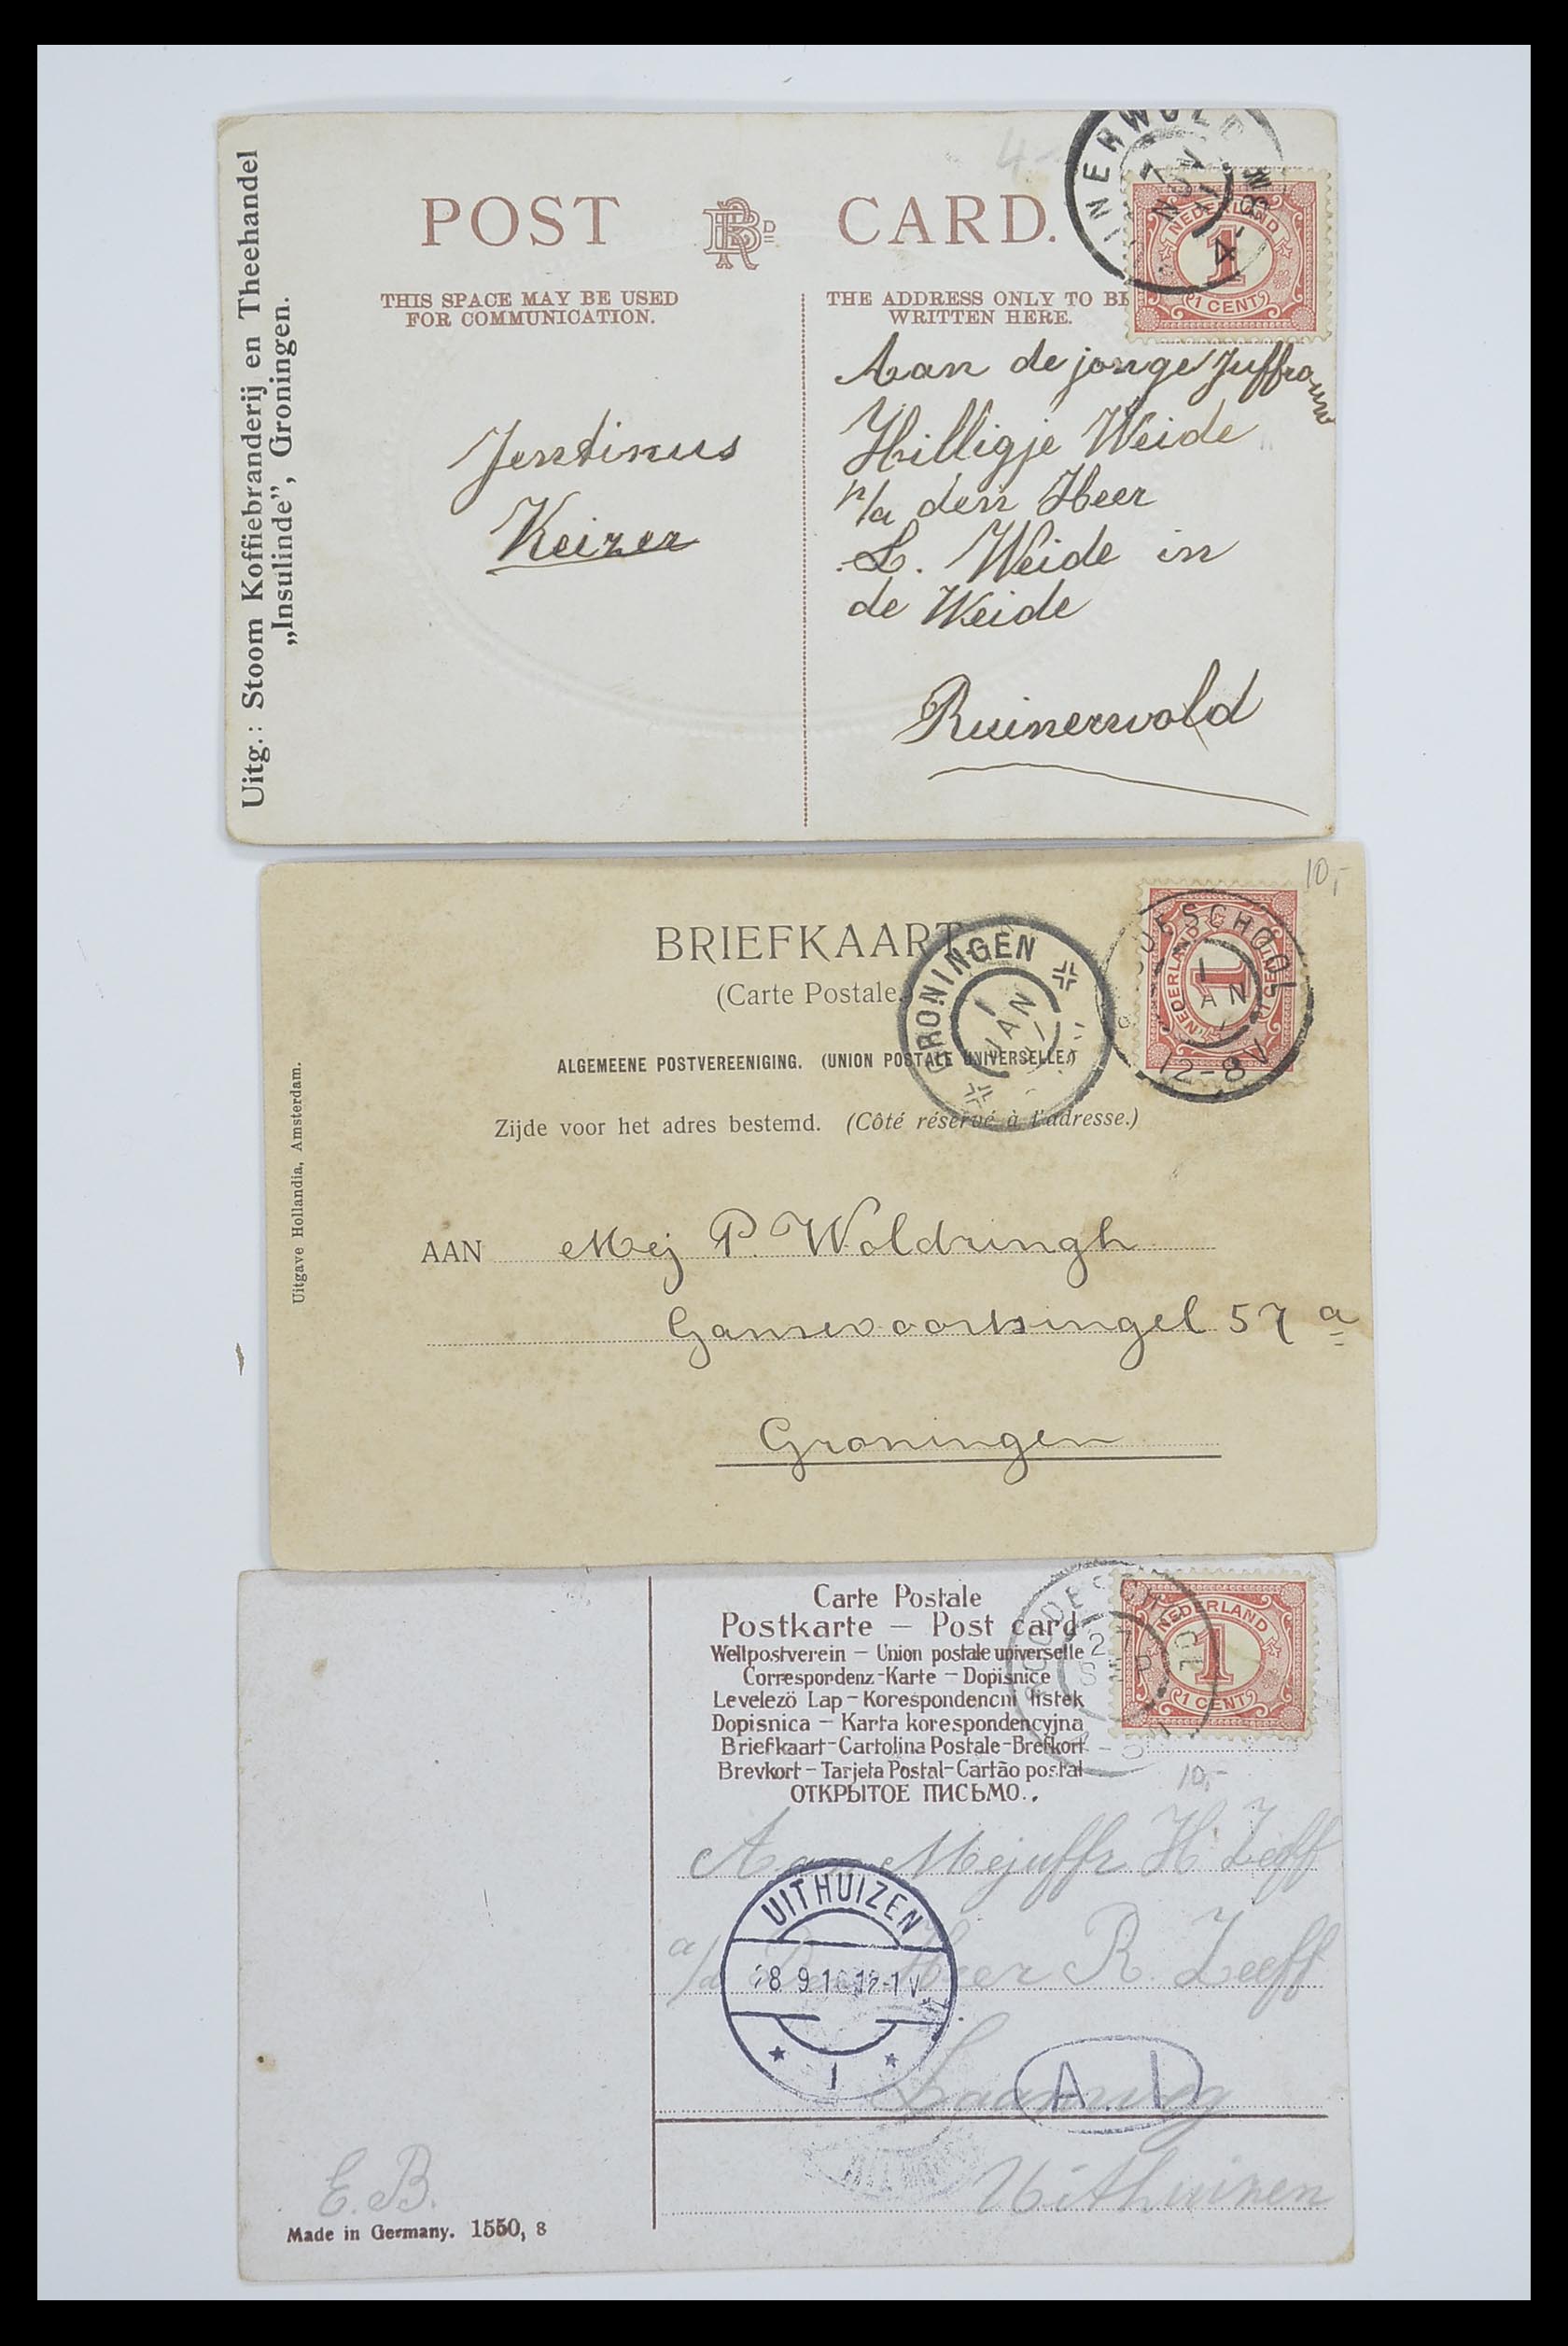 Uitg.: Stoom Koffiebranderij en Theehandel
„Insulinde”, Groningen.
4-
POST CARD.
THIS SPACE MAY BE USED
FOR COMMUNICATION.
THE ADDRESS ONLY TO BE
WRITTEN HERE.
INERWOLD
7
NOV
4-8 N
NEDERLAND
1
1 CENT
Jentinus
Keizer
Aan de jonge Juffrouw
Hilligje Weide
p/a den Heer
L. Weide in
de Weide
Ruinerwold
10,-
BRIEFKAART
(Carte Postale.)
ALGEMEENE POSTVEREENIGING. (UNION POSTALE UNIVERSELLE.)
Zijde voor het adres bestemd. (Côté réservé à l'adresse.)
GRONINGEN
1
JAN
ODESCHOOL
1
AN
12-8V
NEDERLAND
1
1 CENT
Uitgave Hollandia, Amsterdam.
AAN Mej P. Woldringh
Gansevoortsingel 57 a
Groningen
Carte Postale
Postkarte — Post card
Weltpostverein — Union postale universelle
Correspondenz-Karte — Dopisnice
Levelezö Lap - Korespondencni listek
Dopisnica — Karta korespondencyjna
Briefkaart - Cartolina Postale - Brefkort
Brevkort - Tarjeta Postal - Cartão postal
ОТКРЫТОЕ ПИСЬМО..
OODESCHOOL
27
SEP
NEDERLAND
1
1 CENT
10,-
Aan Mejuffr H Zeeff
a/d Den Heer R. Zeeff
UITHUIZEN
8 9 1 12-1 V
1
Laanweg
A. D
Uithuizen
E. B.
Made in Germany. 1550, 8